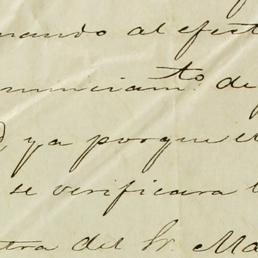 mando al efect
nunciam.to de
ya porque el
se verificara l
tra del Sr. Ma